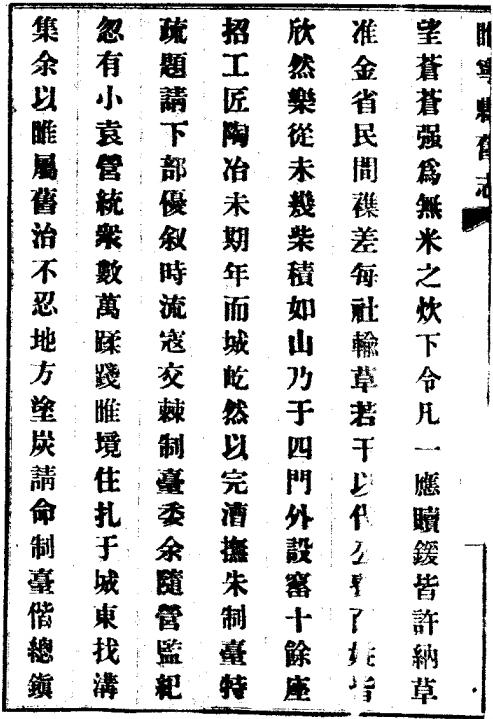 睢寧縣舊志
望蒼蒼强爲無米之炊下令凡一應贖鍰皆許納草
准金省民間襍差每社輸草若干以代公費百姓皆
欣然樂從未幾柴積如山乃于四門外設窰十餘座
招工匠陶冶未期年而城屹然以完漕撫朱制臺特
疏題請下部優叙時流寇交棘制臺委余隨營監紀
忽有小袁營統衆數萬蹂踐睢境住扎于城東找溝
集余以睢屬舊治不忍地方塗炭請命制臺偕總鎭